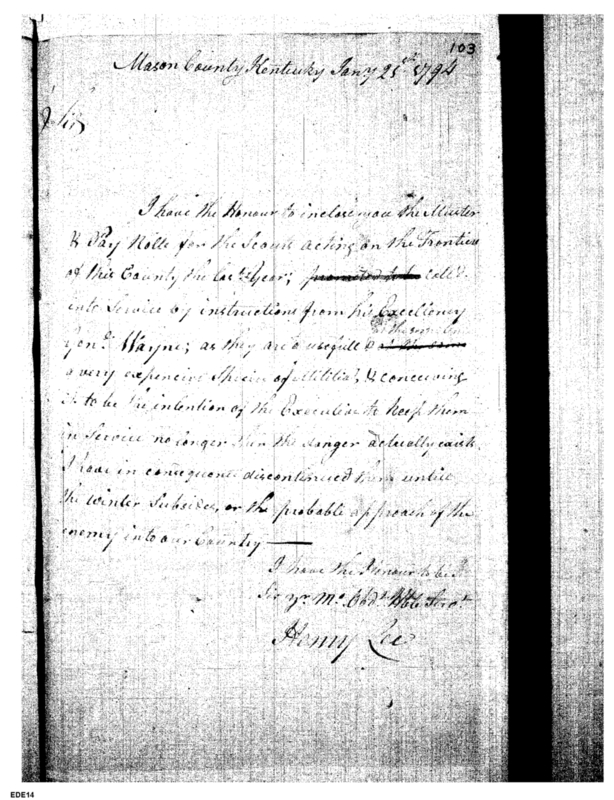 103
Mason County Kentucky Jany 25th 1794
Sir
I have the Honour to inclose you the Muster
& Pay Rolle for the Scouts acting on the Frontier
of this County the last year; call'd
into Service by instructions from his Excellency
at the same time
Genl. Wayne; as they are a usefull & at the same
a very expencive Specie of Militia, & conceiving
it to be the intention of the Executive to keep them
in Service no longer then the danger actually exist.
I have in consequence discontinued them untill
the winter Subsides, or the probable approach of the
enemy into our Country —
I have the Honour to be
Sir yr. Mo. Obdt. Hble Servt
Henry Lee
EDE14